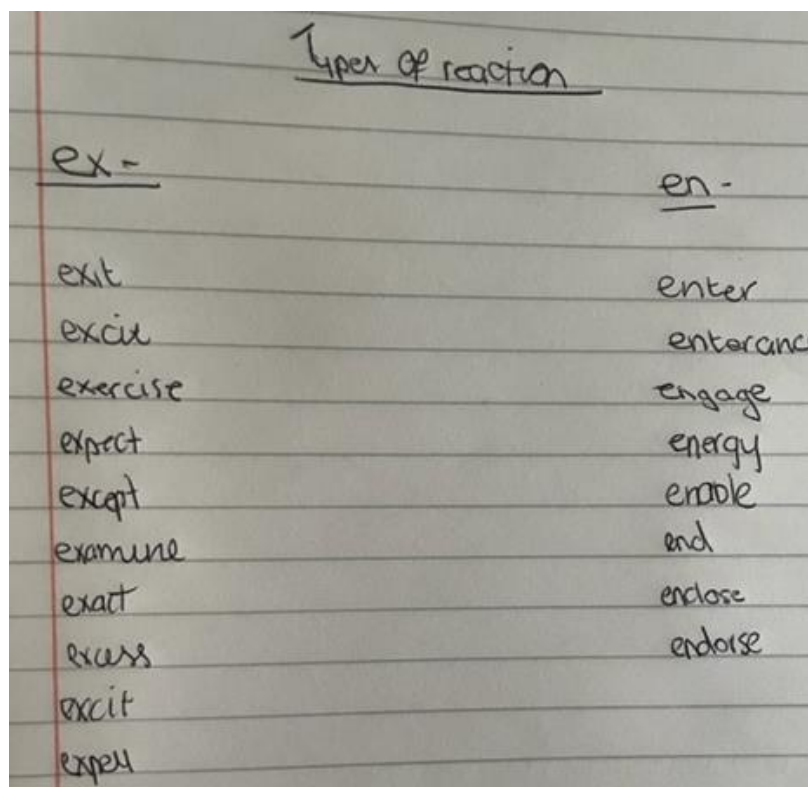 Types of reaction
ex-
exit
exercise
expect
except
examine
exact
excess
excit
expell
en-
enter
enteranc
engage
energy
enable
end
enclose
endorse